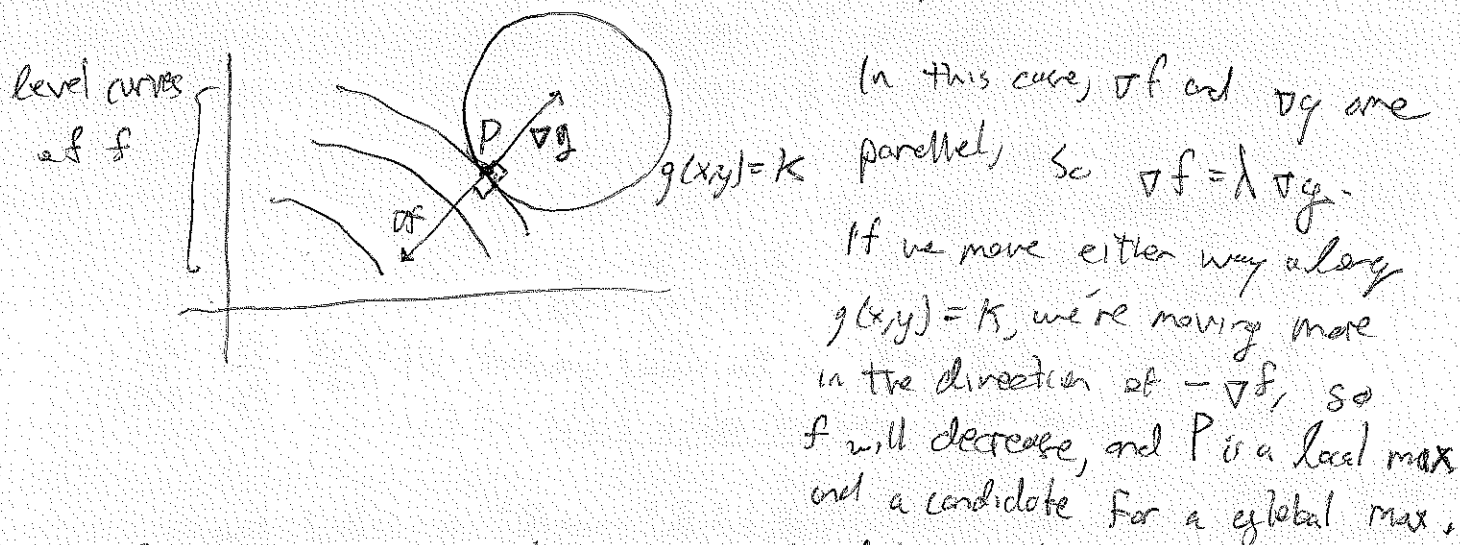 level curves
of f
P
∇g
∇f
g(x,y)=K
In this case, ∇f and ∇g are
parallel, so ∇f=λ∇g.
If we move either way along
g(x,y)=K, we're moving more
in the direction of -∇f, so
f will decrease, and P is a local max
and a candidate for a global max.